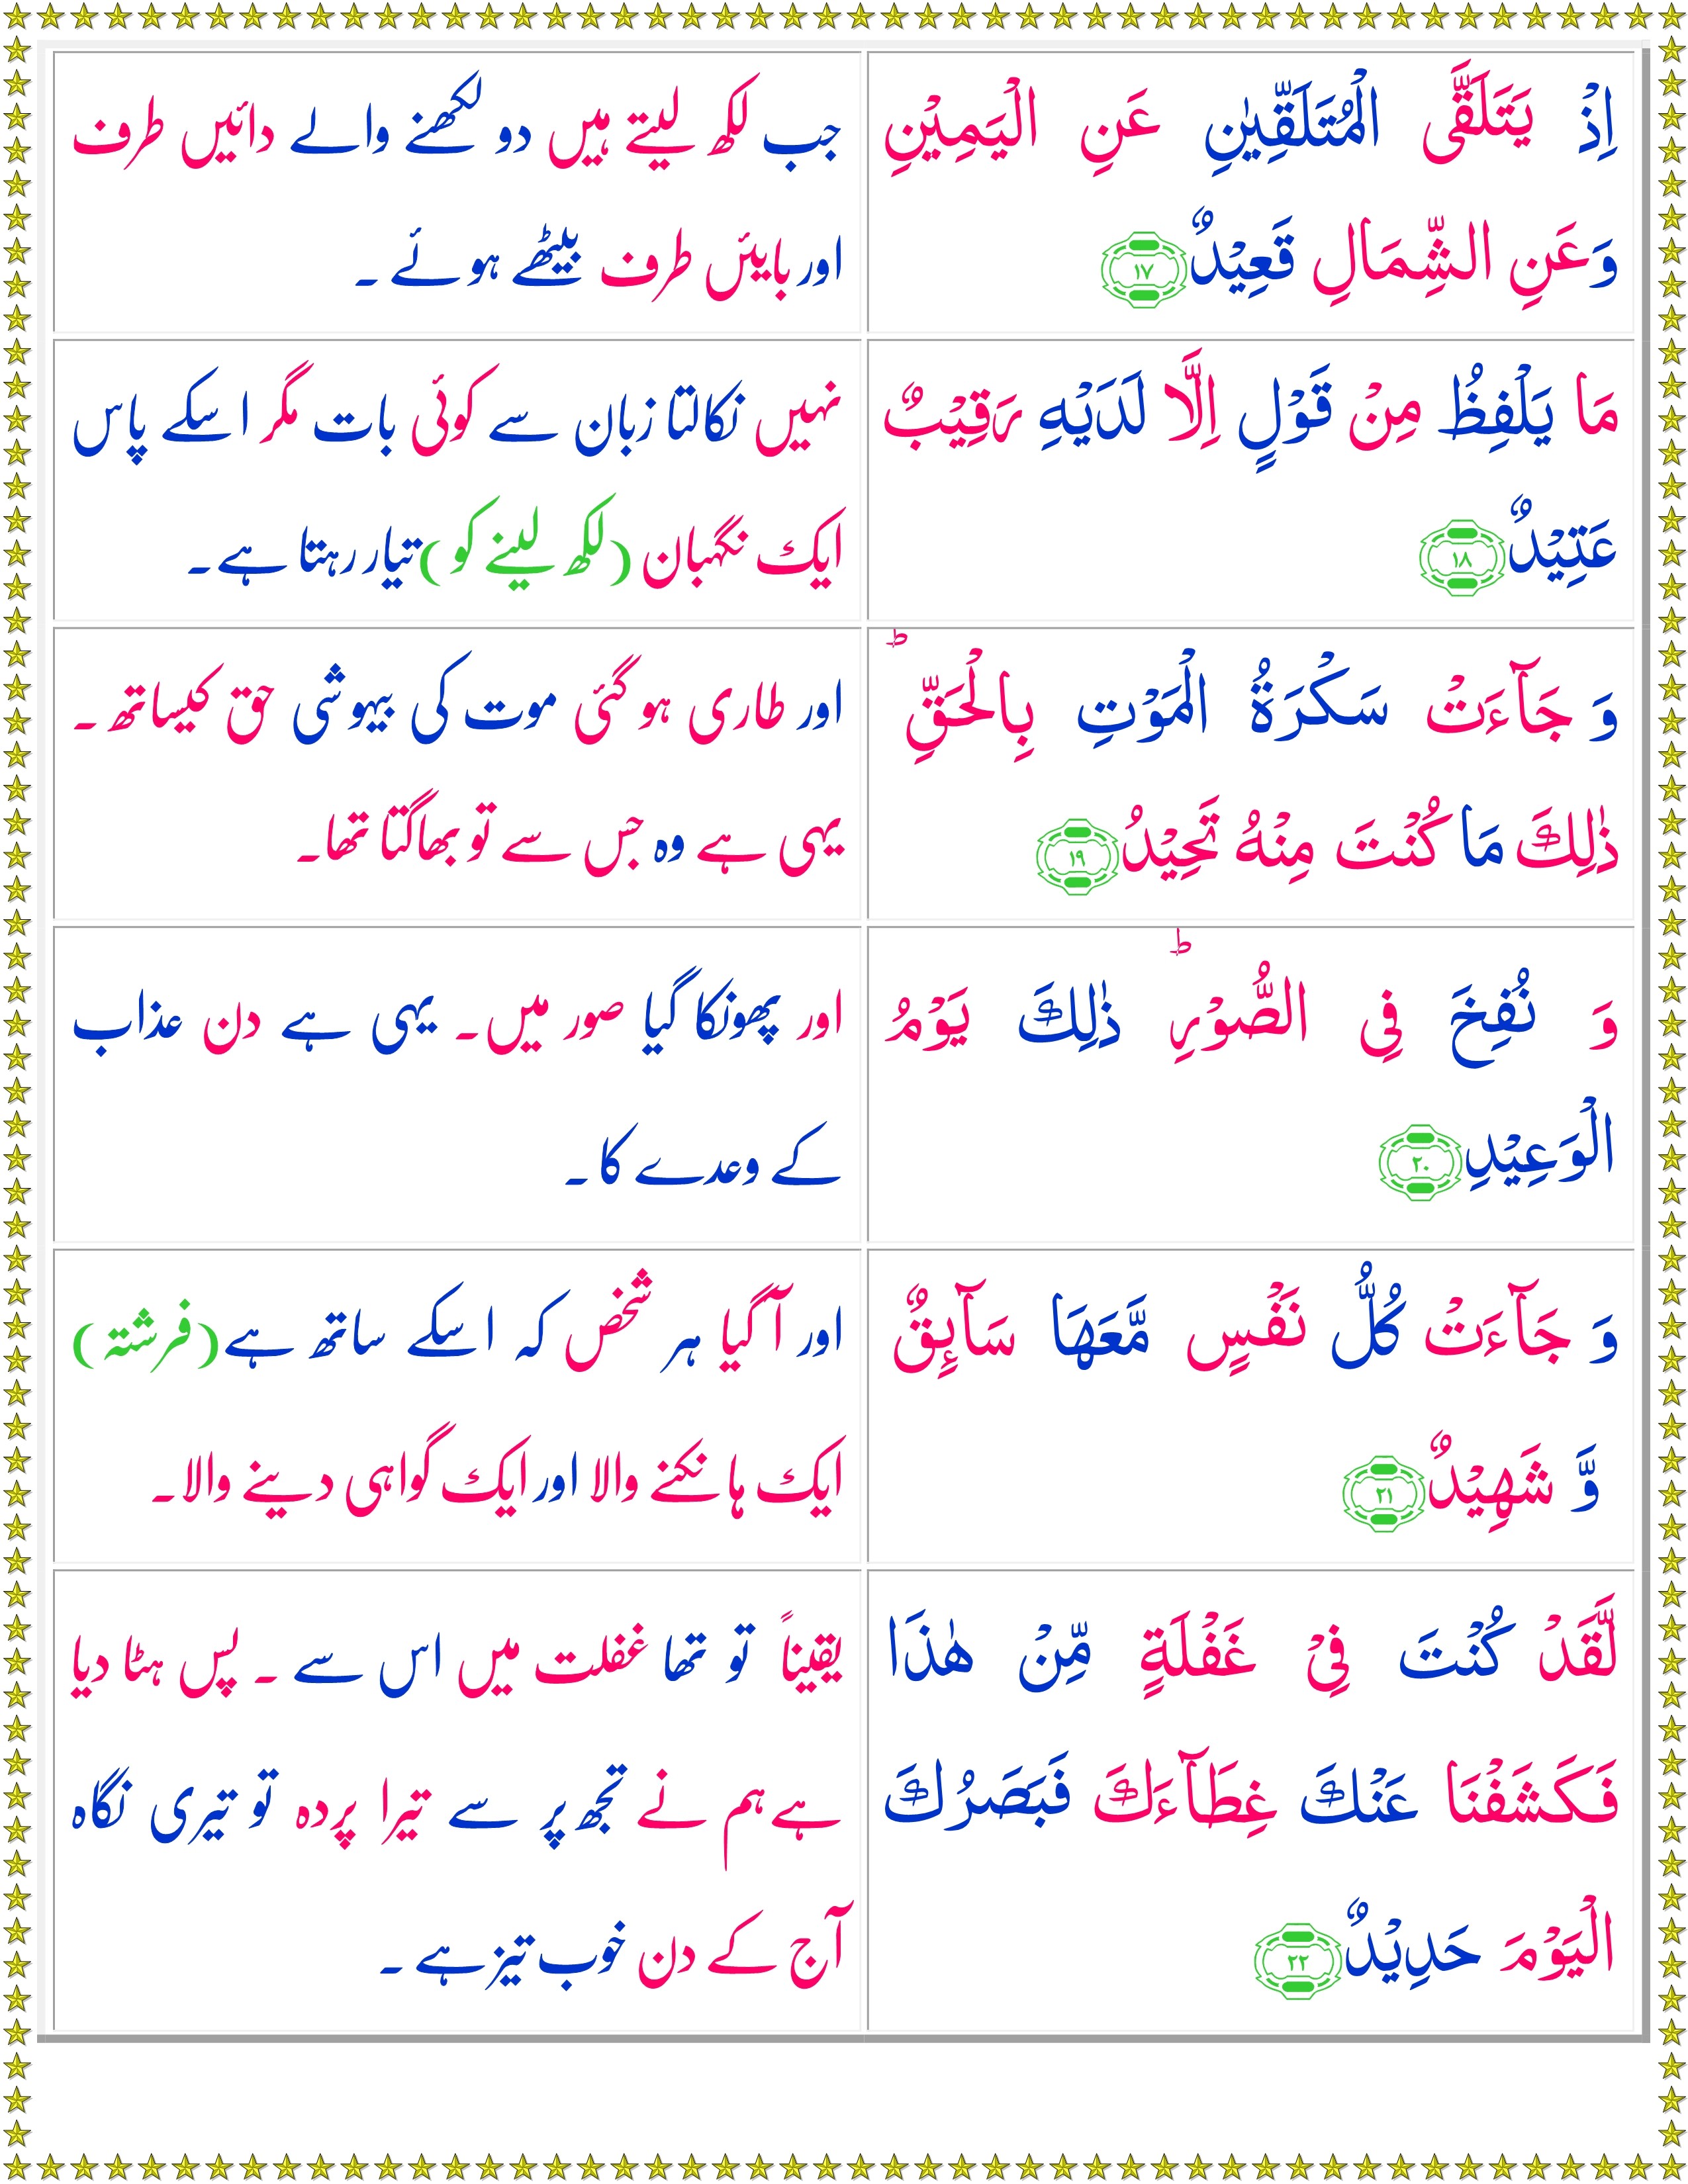 اِذْ يَتَلَقَّى الْمُتَلَقِّيٰنِ عَنِ الْيَمِيْنِ
وَعَنِ الشِّمَالِ قَعِيْدٌ ۝۱۷
جب لکھ لیتے ہیں دو لکھنے والے دائیں طرف
اور بایئں طرف بیٹھے ہوئے ۔
مَا يَلْفِظُ مِنْ قَوْلٍ اِلَّا لَدَيْهِ رَقِيْبٌ
عَتِيْدٌ ۝۱۸
نہیں نکالتا زبان سے کوئی بات مگر اسکے پاس
ایک نگہبان (لکھ لینے کو) تیار رہتا ہے ۔
وَ جَآءَتْ سَكْرَةُ الْمَوْتِ بِالْحَقِّ ؕ
ذٰلِكَ مَا كُنْتَ مِنْهُ تَحِيْدُ ۝۱۹
اور طاری ہو گئی موت کی بیہوشی حق کیساتھ ۔
یہی ہے وہ جس سے تو بھاگتا تھا۔
وَ نُفِخَ فِى الصُّوْرِ ؕ ذٰلِكَ يَوْمُ
الْوَعِيْدِ ۝۲۰
اور پھونکا گیا صور میں ۔ یہی ہے دن عذاب
کے وعدے کا ۔
وَ جَآءَتْ كُلُّ نَفْسٍ مَّعَهَا سَآئِقٌ
وَّ شَهِيْدٌ ۝۲۱
اور آ گیا ہر شخص کہ اسکے ساتھ ہے (فرشتۃ)
ایک ہانکنے والا اور ایک گواہی دینے والا ۔
لَّقَدْ كُنْتَ فِىْ غَفْلَةٍ مِّنْ هٰذَا
فَكَشَفْنَا عَنْكَ غِطَآءَكَ فَبَصَرُكَ
الْيَوْمَ حَدِيْدٌ ۝۲۲
یقیناً تو تھا غفلت میں اس سے ۔ پس ہٹا دیا
ہے ہم نے تجھ پر سے تیرا پردہ تو تیری نگاہ
آج کے دن خوب تیز ہے ۔